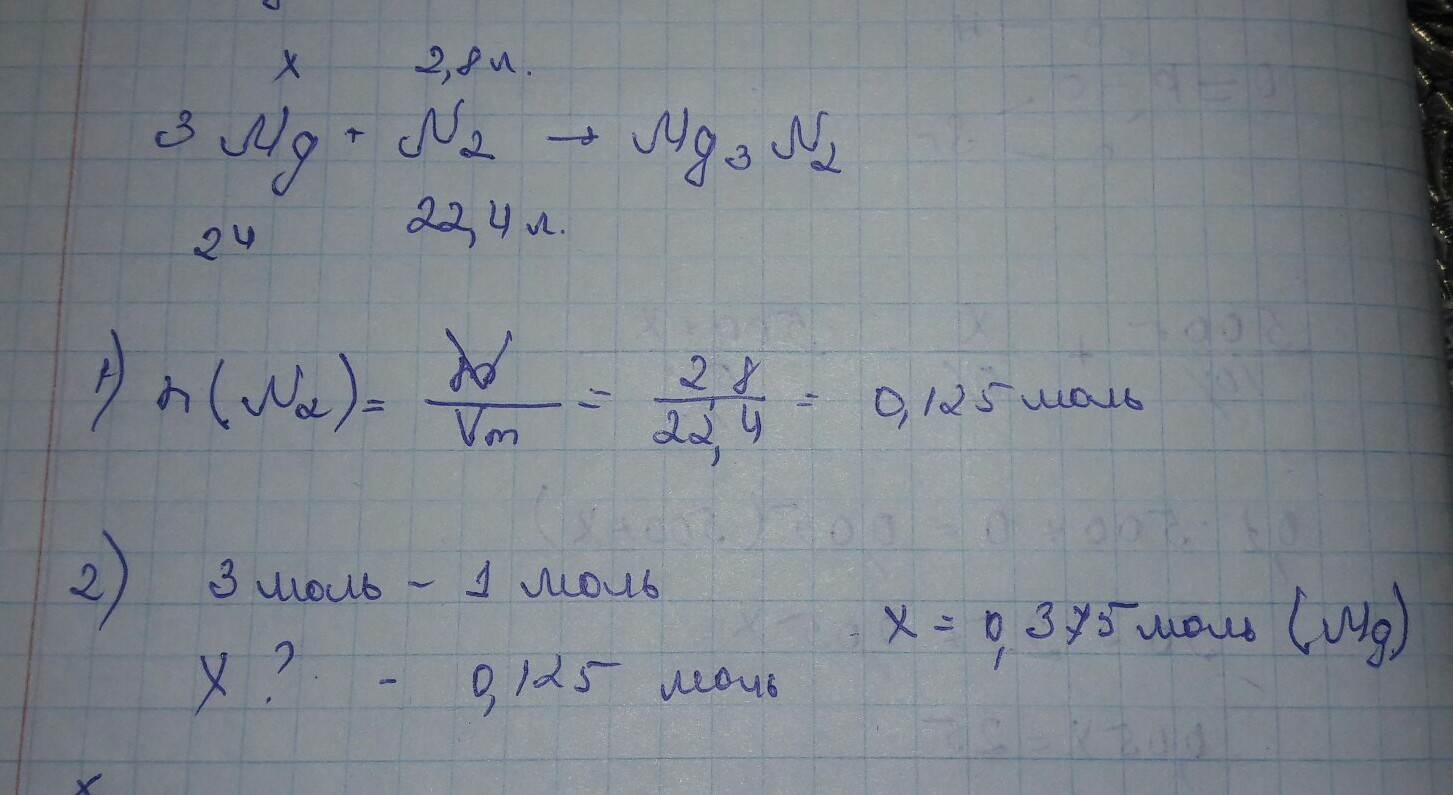 x 2,8 л.
3 Mg + N2 → Mg3 N2
24 22,4 л.
1) n(N2) = / Vm = 2 8 / 22,4 = 0,125 моль
2) 3 моль - 1 моль
X ? - 0,125 моль
x = 0,375 моль (Mg)
x